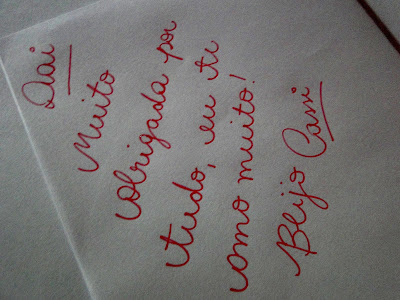 Dai
Muito
obrigada por
tudo, eu ti
amo muito!
Beijo Cami